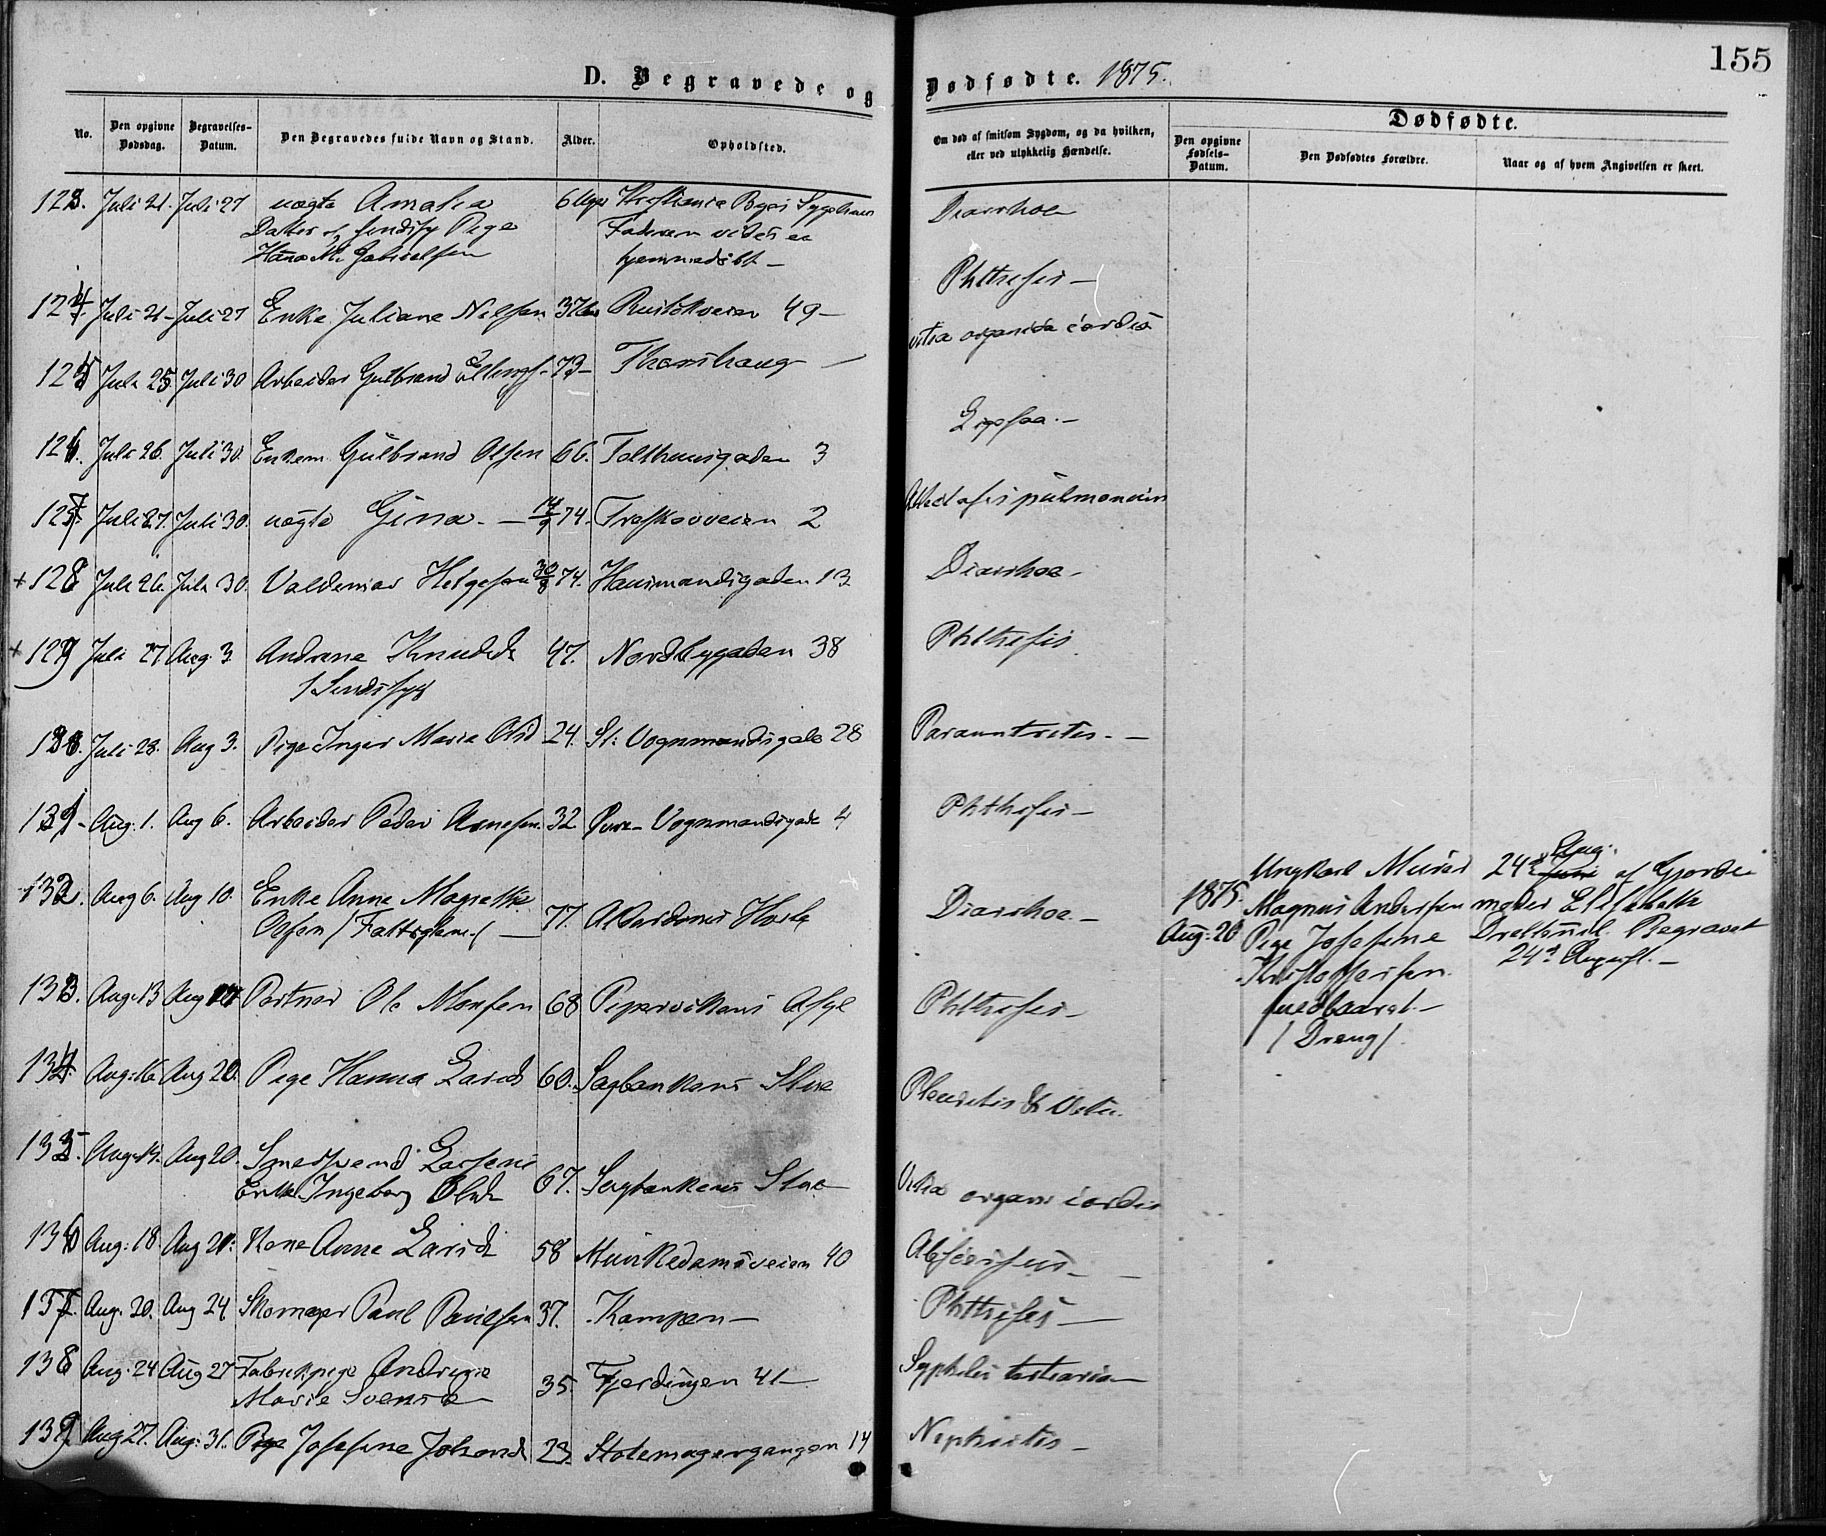 155
D. Begravede og Dødfødte. 1875.
No.
Den opgivne Dødsdag.
Begravelses-Datum.
Den Begravedes fulde Navn og Stand.
Alder.
Opholdsted.
Om død af smitsom Sygdom, og da hvilken, eller ved ulykkelig Hændelse.
Dødfødte.
Den opgivne Fødsels-Datum.
Den Dødfødtes Forældre.
Naar og af hvem Angivelsen er skeet.
123. Juli 21. Juli 27 uægte Amalia Diarrhoe
Datter af Pige
124 Juli 21 - Juli 27 Enke Juliane Nilsen 49 - Phthisis -
125 Juli 25 Juli 30 Arbeider Gulbrand 73 - Thorshaug organica cordis
126. Juli 26. Juli 30. Enkem. Gulbrand Olsen 66. Tolthusgaden 3
127. Juli 27. Juli 30. uægte Gina - 14/9 74. Træskoveien 2 pulmonum
+ 128 Juli 26. Juli 30. Valdemar Helgesen 30/8 74. Hausmandsgaden 13 Diarrhoe -
+ 129 Juli 27 Aug 3 Andrine Knudsd 47. Nordbygaden 38 Phthisis
/Sindssyg/
130. Juli 28. Aug 3. Pige Inger Marie Olsd 24. St: Vognmandsgade 28
131 - Aug. 1. Aug 6. Arbeider Peder Arnesen 32 Vognmandsgade 4 Phthisis -
132. Aug 6. Aug 10. Enke Anne Magrethe
Olsen /Fattiglem/ - 77. Alderdoms Hosle Diarrhoe -
1875. Aug: 20
Ungkarl Murer
Magnus Andersen
Pige Josefine
Kristoffersen
/Dreng/.
24de Aug. af Gjorde
moder Elisabeth
Begravet
24de August. -
133. Aug. 13 Aug 17 Portner Ole 68 Pipervikens Asyl Phthisis -
134 Aug: 16 Aug 20. Pige Hanna Larsd 60. Sagbankens Stue
135. Aug. 14. Aug 20. Smedsvend Larsens
Enke Ingeborg Olsd 67. Sagbankens Stue Vitia organ cordis
136 Aug: 18. Aug 21: Kone Anne Larsd 58 Munkedamsveien 40 Abscessus -
137. Aug. 20. Aug 24 Skomager Paul Paulsen 37. Kampen - Phthisis -
138 Aug. 24 Aug 27 Fabrikpige Andrine
Marie Svensen 35. Fjerdingen 41 -
139 Aug 27. Aug: 31. Pige Josefine Johansd 23. Stolemagergangen 14 Nephritis -